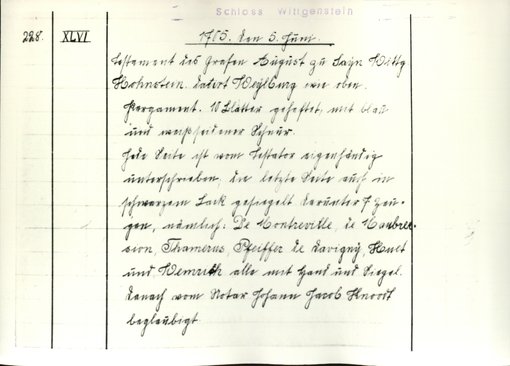 Schloss Wittgenstein
228. XLVI 1705. den 5. Juni.
Testament des Grafen August zu Sayn Wittg.
Hohnstein. datert Weylburg wie oben.
Pergament. 10 Blätter geheftet, mit blau
und weißseidener Schnur.
Jede Seite ist vom Testator eigenhändig
unterschrieben, die letzte Seite auch in
schwarzem Lack gesiegelt darunter 7 Zeu-
gen, nämlich: De Montreville, de
Thamerus, Pfeiffer de Lavigny,
und alle mit Hand und Siegel.
Danach vom Notar Johann Jacob
beglaubigt